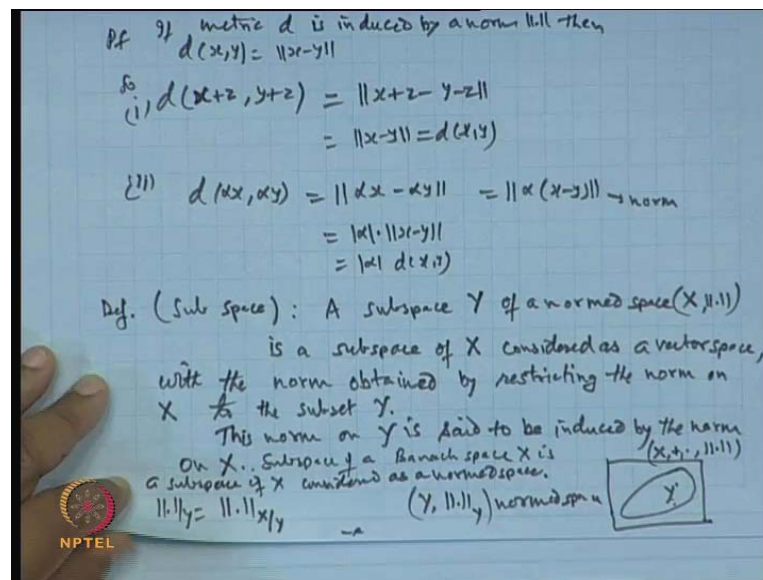 Pf If metric d is induced by a norm ||.|| then
d(x,y) = ||x-y||
So
(i) d(x+z, y+z) = ||x+z-y-z||
= ||x-y|| = d(x,y)
(ii) d(αx, αy) = ||αx - αy|| = ||α(x-y)|| → norm
= |α|.||x-y||
= |α| d(x,y)
Def. (Sub space): A subspace Y of a normed space (X, ||.||)
is a subspace of X considered as a vector space,
with the norm obtained by restricting the norm on
X to the subset Y.
This norm on Y is said to be induced by the norm
on X.. Subspace of a Banach space X is
(X,+,., ||.||)
a subspace of X considered as a normed space.
||.||y = ||.||x/y (Y, ||.||y) normed space
Y
NPTEL